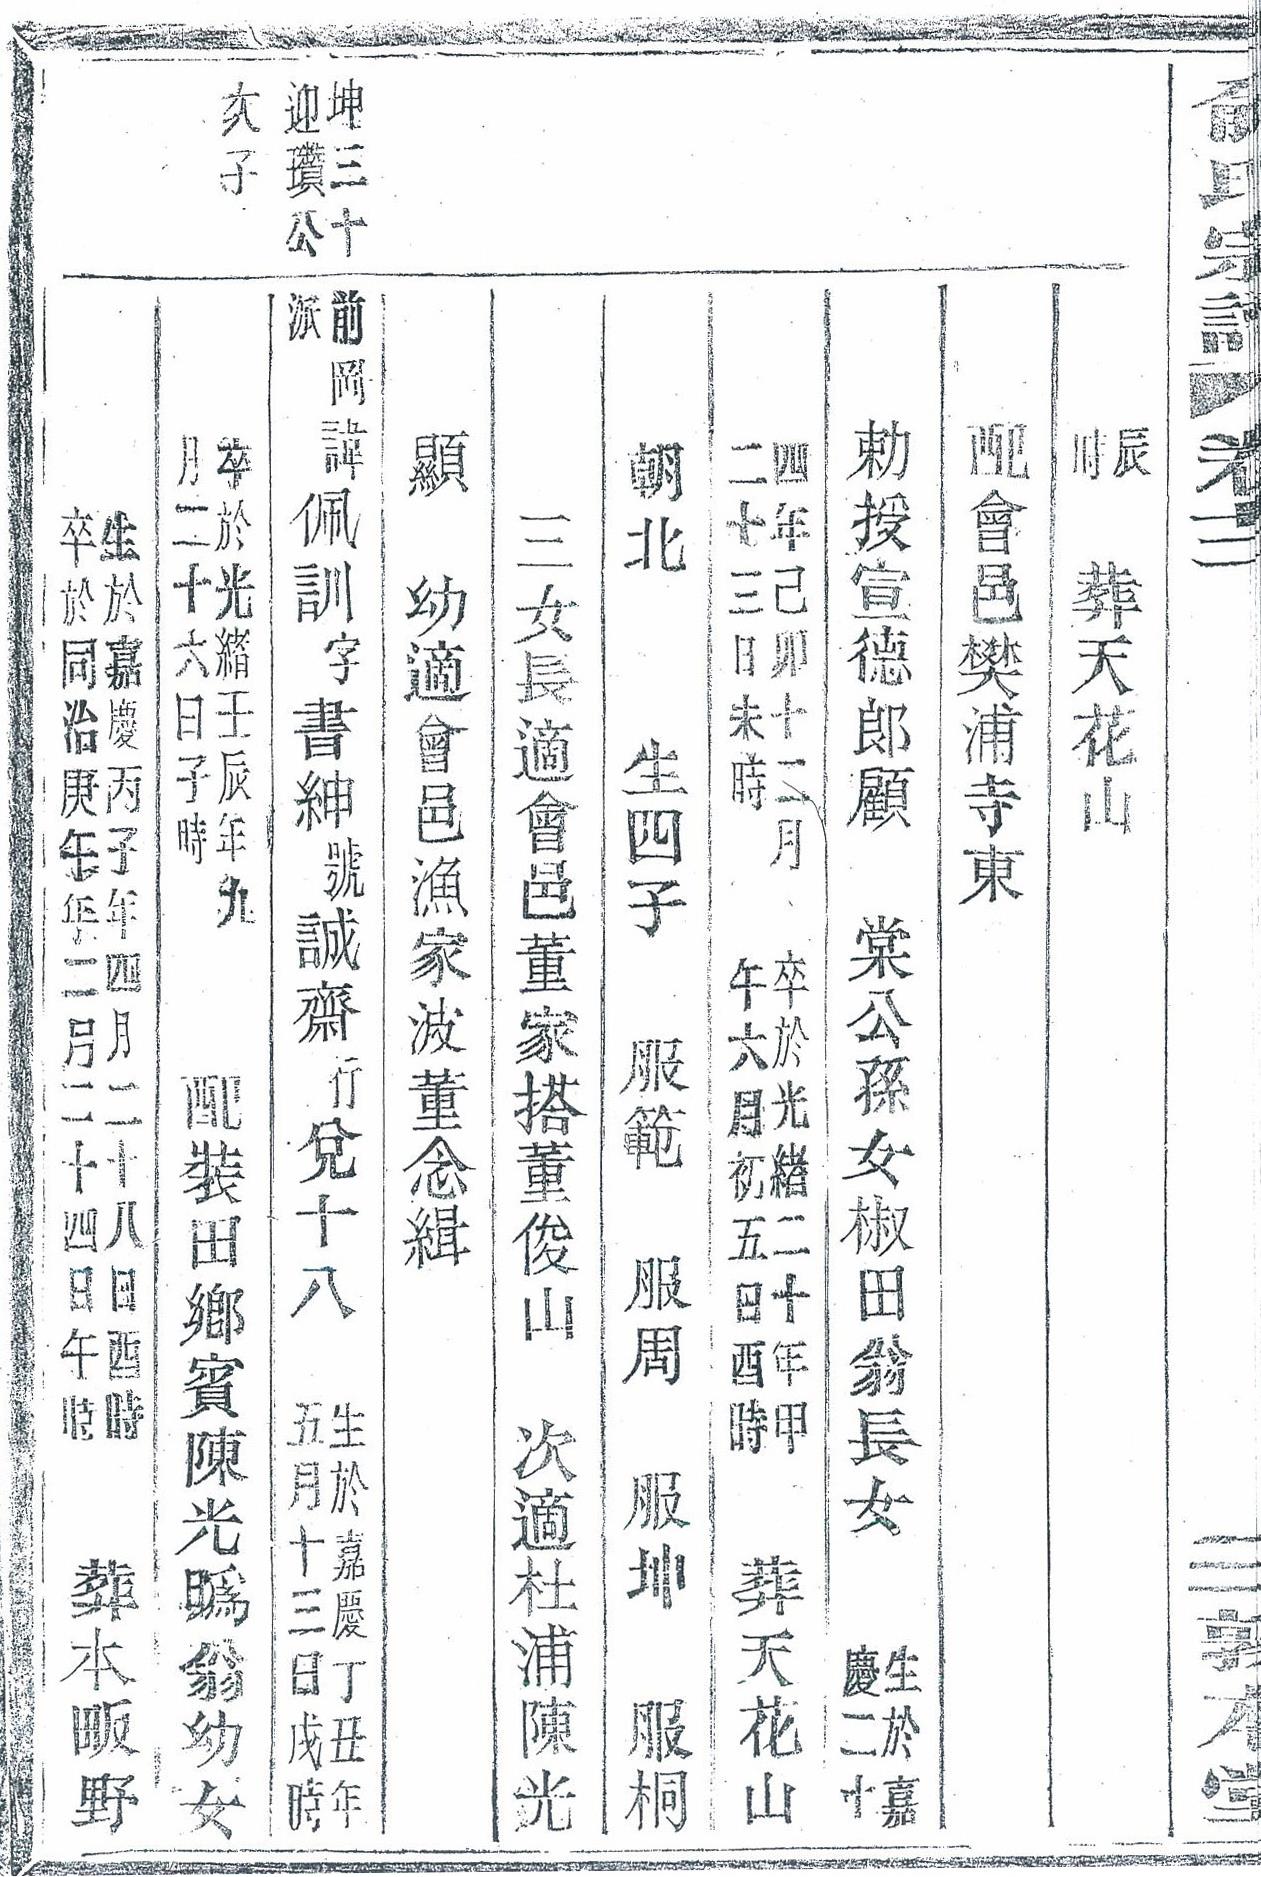 俞氏宗譜 卷三 三 敦本堂
辰時 葬天花山
配會邑樊浦寺東
勅授宣德郎顧 棠公孫女椒田翁長女 生於嘉慶二十
四年己卯十二月二十三日未時 卒於光緒二十年甲午六月初五日酉時 葬天花山
朝北 生四子 服範 服周 服坤 服桐
三女長適會邑董家搭董俊山 次適杜浦陳光
顯 幼適會邑漁家波董念緝
坤三十
迎瓚公
次子
前岡派諱佩訓字書紳號誠齋行兌十八 生於嘉慶丁丑年五月十三日戌時
卒於光緒壬辰年九月二十六日子時 配裝田鄉賓陳光鄬翁幼女
生於嘉慶丙子年四月二十八日酉時卒於同治庚午年二月二十四日午時 葬本畈野